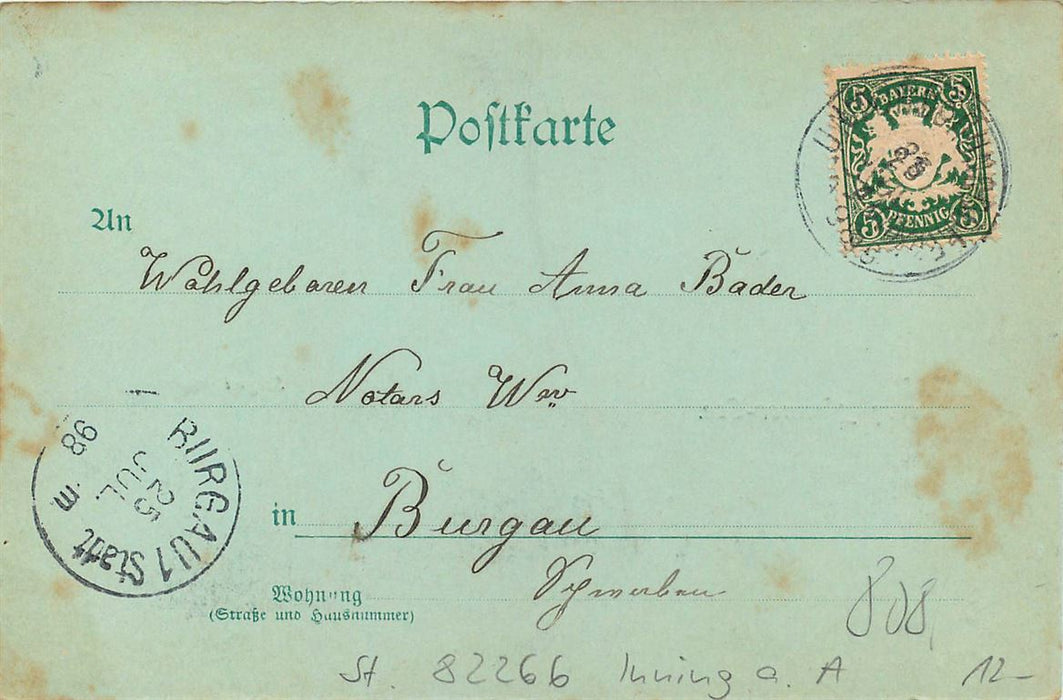 Postkarte
5 BAYERN 5
5 PFENNIG 5
An
Wohlgeboren Frau Anna Bader
Notars Wwe
BURGAU 1 Stadt
25 JUL. 98
in Burgau
Schwaben
Wohnung
(Straße und Hausnummer)
808
St. 82266 Inning a. A 12-